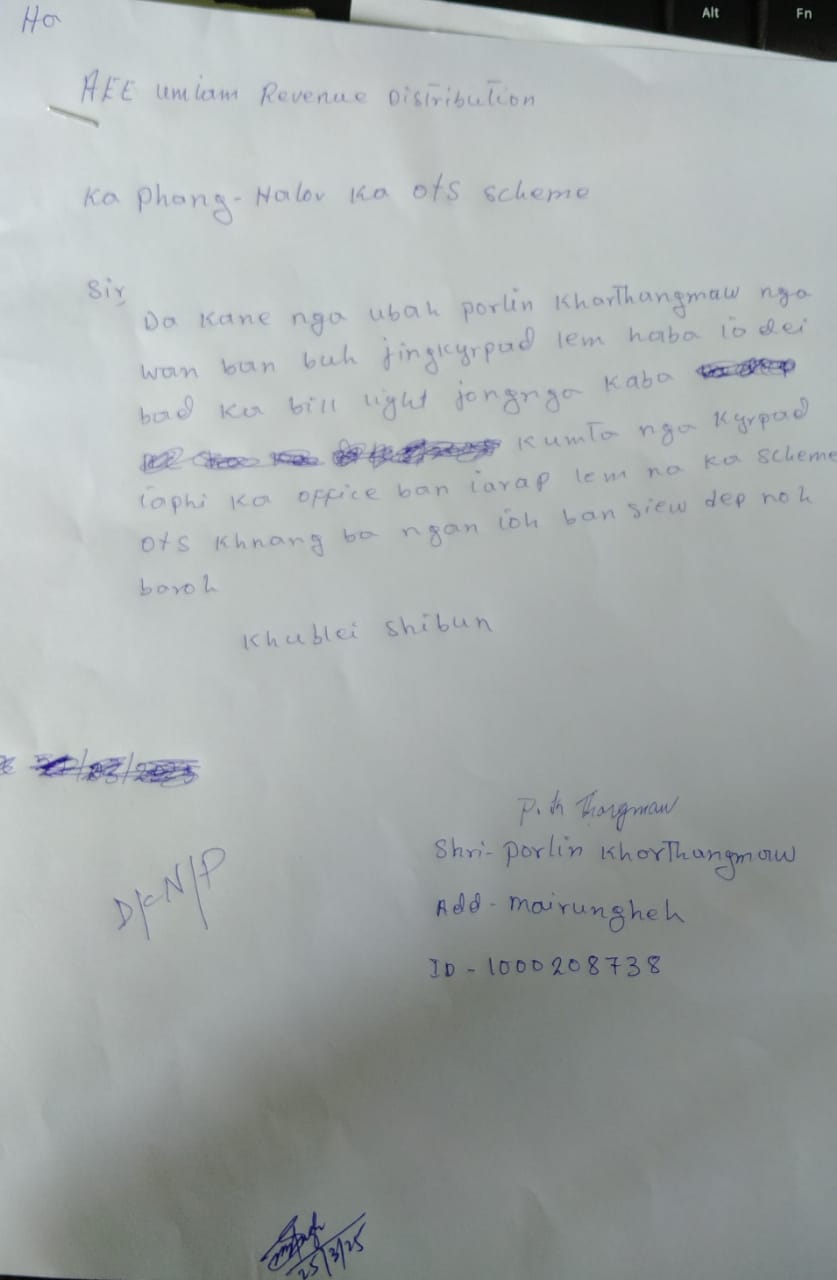 Ha
AEE umiam Revenue Distribution
Ka phang- Halor ka ots scheme
Sir
Da kane nga ubah porlin Kharthangmaw nga
wan ban buh jingkyrpad lem haba ïa dei
bad ka bill light jongnga kaba
kumta nga kyrpad
ïaphi ka office ban ïarap lem na ka scheme
ots khnang ba ngan ïoh ban siew dep noh
baroh
Khublei shibun
P. Kh Thangmaw
Shri- porlin kharThangmaw
Add- mairungheh
ID - 1000208738
D/C N/P
25/3/25
Alt
Fn